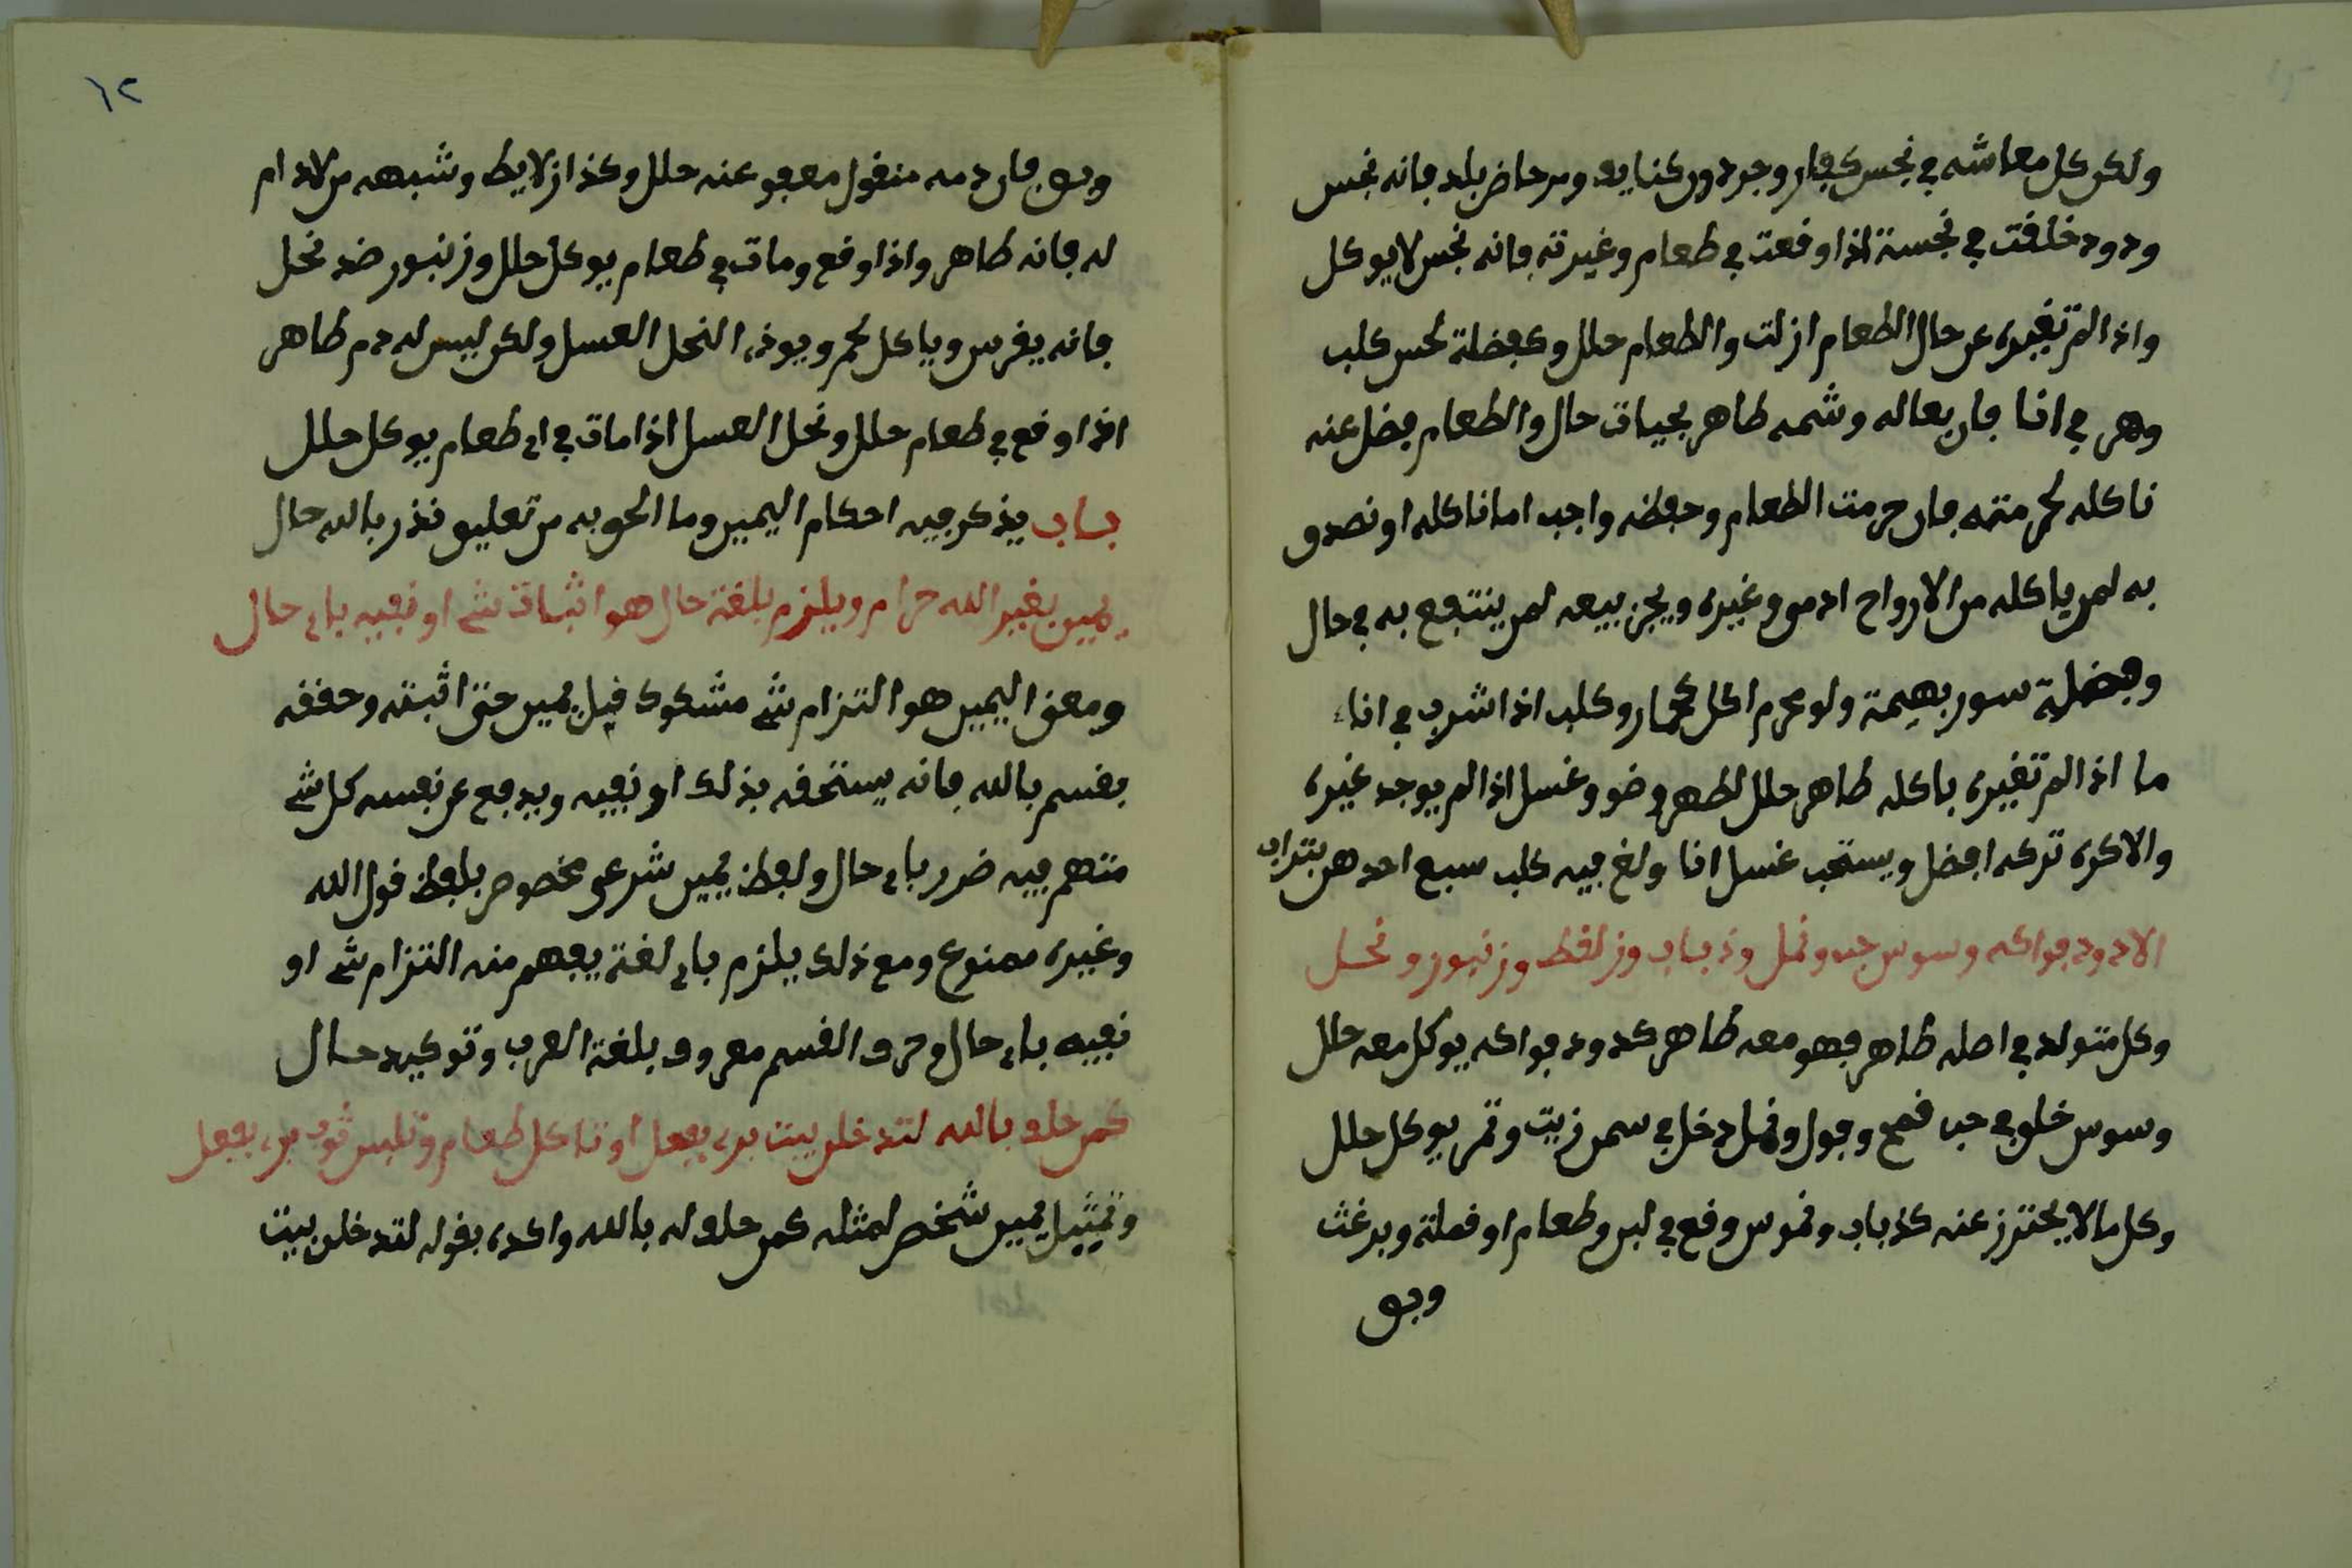 ولكن كل معاشه في نجس كفار وجرد دور كنايف ومرحاض بلد فانه نجس
ودود خلقت في نجسة اذا وقعت في طعام وغيرته فانه نجس لا يوكل
واذا لم تغيره عن حال الطعام ازلت والطعام حلل وكفضلة لحس كلب
وهر في انا فان بعاله وشمه طاهر بحيات حال والطعام فضل عنه
ناكله لحرمته فان حرمت الطعام وحفظه واجب اما ناكله او نصدق
به لمن ياكله من الارواح ادمي وغيره ويجز بيعه لمن ينتفع به في حال
وفضلة سور بهيمة ولو محرم اكل كحمار وكلب اذا شرب في اناء
ما اذا لم تغيره باكله طاهر حلل لطهر وضو وغسل اذا لم يوجد غيره
والا كره تركه افضل ويستحب غسل انا ولغ فيه كلب سبع احدهن بتراب
الا دود فواكه وسوس حب ونمل وذباب وزلفط وزنبور ونحل
وكل متولد في اصله طاهر فهو معه طاهر كدود فواكه يوكل معه حلل
وسوس خلق في حب قمح وفول ونمل دخل في سمن زيت وتمر يوكل حلل
وكل ما لا يحترز عنه كذباب ونموس وقع في لبن وطعام او قملة وبرغث
وبق
١٢
وبق فان دمه منقول معفو عنه حلل وكذا زلايط وشبهه من لا دام
له فانه طاهر واذا وقع ومات في طعام يوكل حلل وزنبور ضد نحل
فانه يفرس وياكل لحم ويوذي النحل العسل ولكن ليس له دم طاهر
اذا وقع في طعام حلل ونحل العسل اذا مات في اي طعام يوكل حلل
باب يذكر فيه احكام اليمين وما الحق به من تعليق نذر بالله حال
يمين بغير الله حرام ويلزم بلغة حال هو اثبات شي او نفيه باي حال
ومعنى اليمين هو التزام شي مشكوك قبل يمين حتى اثبته وحققه
بقسم بالله فانه يستحقه بذلك او نفيه ويدفع عن نفسه كل شي
متهم فيه ضرر باي حال ولفظ يمين شرعي مخصوص بلفظ قول الله
وغيره ممنوع ومع ذلك يلزم باي لغة يفهم منه التزام شي او
نفيه باي حال وحرف القسم معروف بلغة العرب وتوكيد حال
كمن حلف بالله لتدخلن بيت بري بفعل او تاكل طعام وتلبس ثوب بري بفعل
وتمثيل يمين شخص لمثله كمن حلف له بالله واكده بقوله لتدخلن بيت